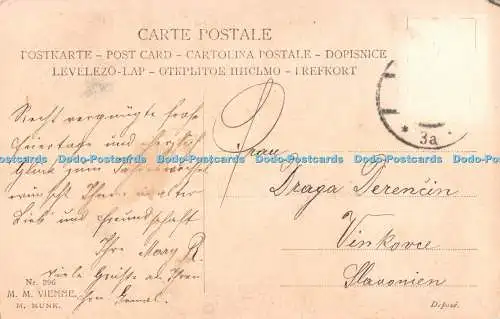 CARTE POSTALE
POSTKARTE – POST CARD – CARTOLINA POSTALE – DOPISNICE
LEVELEZŐ-LAP – ОТКРЫТОЕ ПИСЬМО – BREFKORT
Recht vergnügte frohe
Feiertage und herzlich
Glück zum Jahreswechsel
wünscht Ihnen in alter
Lieb' und Freundschaft
Ihre Mary R.
Viele Grüße an Ihren
Nr. 296
M. M. VIENNE.
M. MUNK.
Frau
Draga Derenčin
Vinkovce
Slavonien
Déposé.
3a
Dodo-Postcards Dodo-Postcards Dodo-Postcards Dodo-Postcards Dodo-Postcards Dodo-Postcards